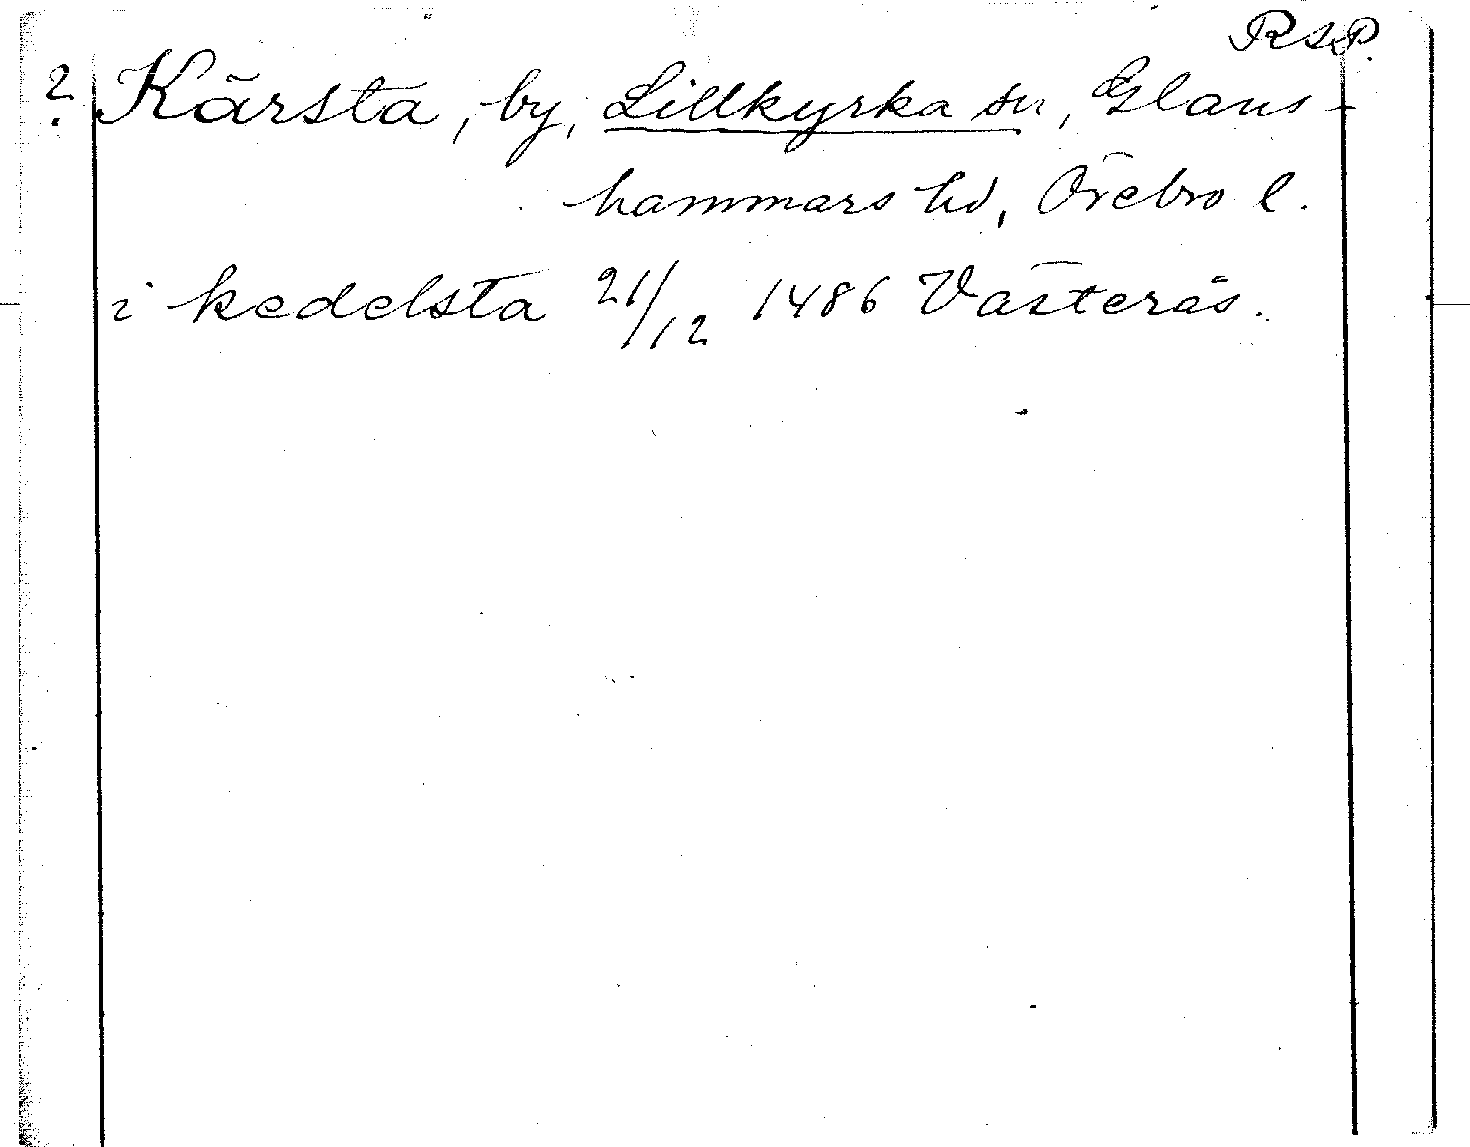 RSP.
? Kärsta, by, Lillkyrka sn, Glans-
hammars hd, Örebro l.
i kedelsta 21/12 1486 Västerås.